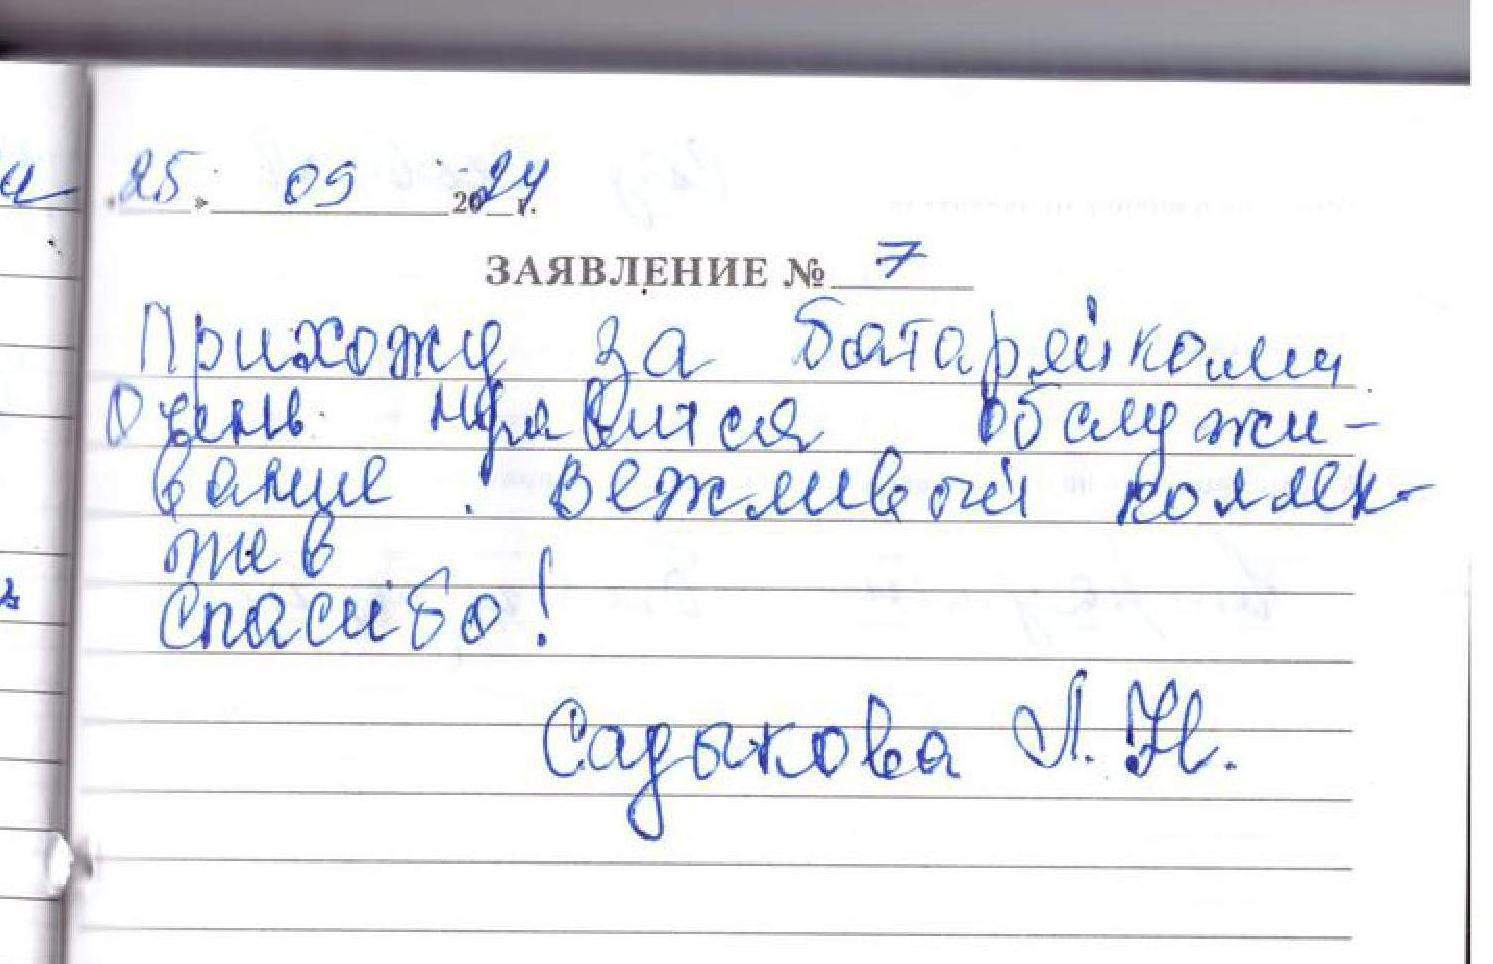 «25» 09 2024 г.
ЗАЯВЛЕНИЕ № 7
Прихожу за батарейками
Очень нравится обслужи-
вание. Вежливый коллек-
тив
Спасибо!
Садыкова Л. Н.